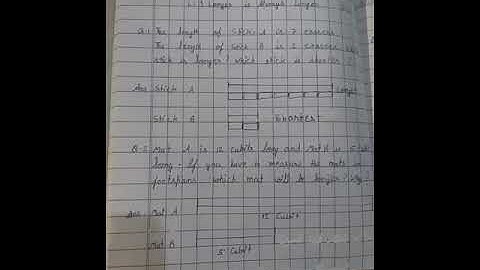 Longer is Always Longer
Q:1 The length of Stick A is 7 erasers
The length of Stick B is 2 erasers
stick is longer? Which stick is shorter?
Ans Stick A Longest
Stick B Shortest
Q-2 Mat A is 12 cubits long and Mat B is 5
long. If you have to measure the mats in
footspans which mat will be longer? Why?
Ans Mat A
12 Cubit
Mat B
5 Cubit